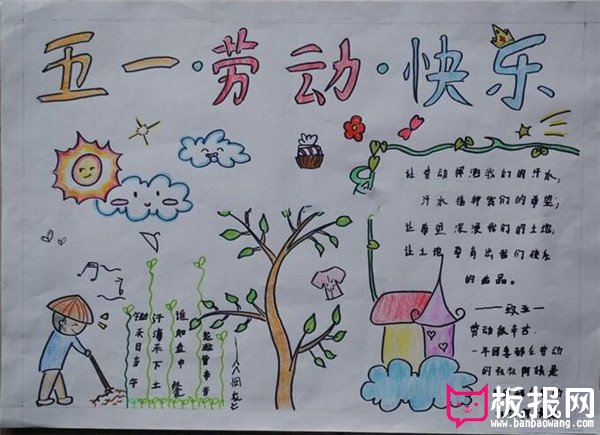 五一·劳动·快乐
让劳动挥洒我们的汗水,
汗水播种我们的希望,
让希望浸漫我们的土地,
让土地孕育出我们快乐
的出品。
——致五一
劳动很辛苦
一年四季都在劳动
的叔叔阿姨是
锄禾日当午
汗滴禾下土
谁知盘中餐
粒粒皆辛苦
悯农
板报网
www.banbaowang.com